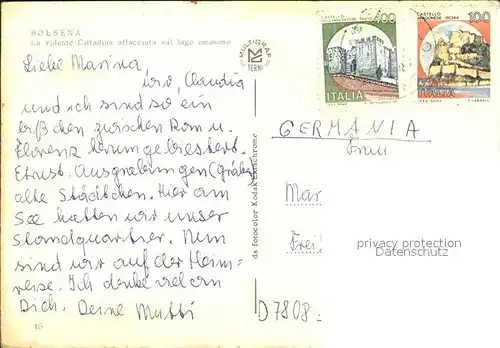 BOLSENA
La ridente Cittadina affacciata sul lago omonimo
Liebe Marina,
wir, Claudia
und ich sind so ein
bißchen zwischen Rom u.
Florenz herumgebrettert.
Etrusk. Ausgrabungen (Gräber)
alte Städtchen. Hier am
See hatten wir unser
Standquartier. Nun
sind wir auf der Heim-
reise. Ich denke viel an
Dich. Deine Mutti
16
MULTIGRAF
TERNI
da fotocolor Kodak Ektachrome
CASTELLO
DELL'IMPERATORE PRATO
400
ITALIA
CASTELLO
ARAGONESE ISCHIA
100
ITALIA
GERMANIA
Frau
Mar
Frei
D 7808
privacy protection
Datenschutz